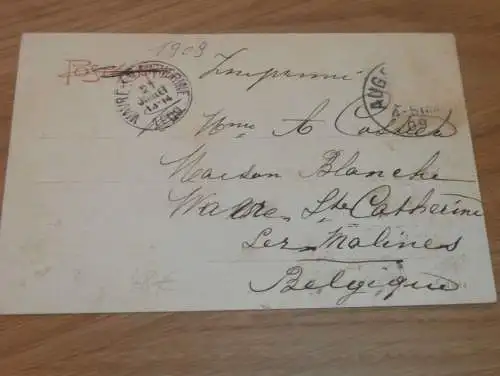 1909
Imprimé
WAVRE-Ste-CATHERINE
21
JUILLET
13-14
1909
AUG
09
Mme A
Maison Blanche
Wavre Ste Catherine
Lez-Malines
Belgique